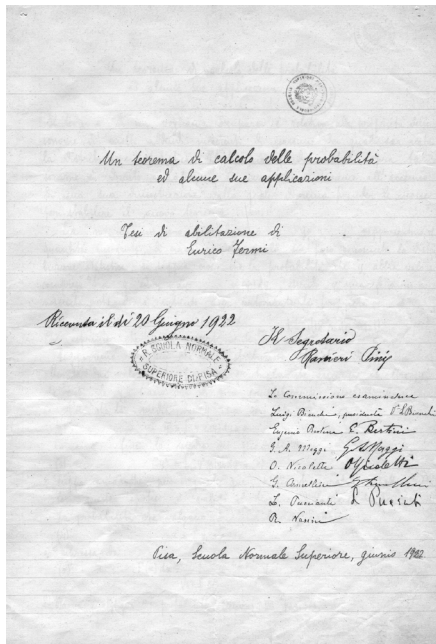 Un teorema di calcolo delle probabilità
ed alcune sue applicazioni
Tesi di abilitazione di
Enrico Fermi
Ricevuta il dì 20 Giugno 1922
R. SCUOLA NORMALE
SUPERIORE DI PISA
Il Segretario
Ranieri Pini
La Commissione esaminatrice
Luigi Bianchi, presidente L Bianchi
Eugenio Bertini E. Bertini
G. A. Maggi G A Maggi
O. Nicoletti O Nicoletti
G.
L. Puccianti L Puccianti
R. Nasini
Pisa, Scuola Normale Superiore, giugno 1922